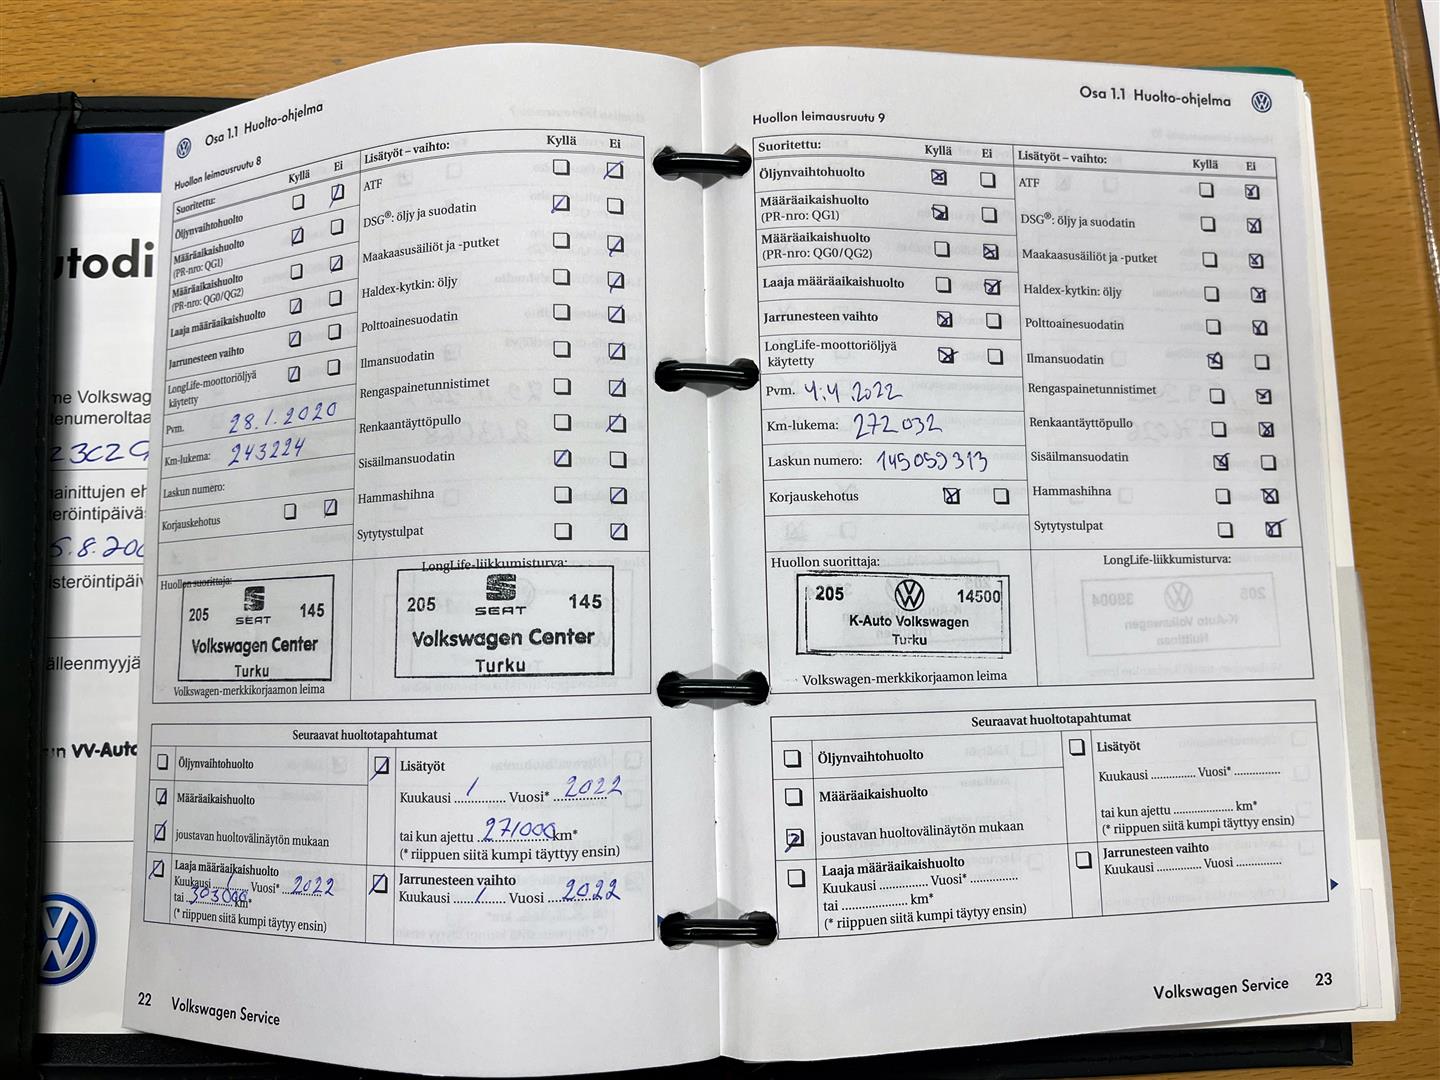 utodi
me Volkswag
tenumeroltaa
23C2G
ainittujen eh
eröintipäiväs
5.8.200
isteröintipäiv
älleenmyyjä
VV-Auto
Osa 1.1 Huolto-ohjelma
Huollon leimausruutu 8
Suoritettu: Kyllä Ei
Öljynvaihtohuolto
Määräaikaishuolto
(PR-nro: QG1)
Määräaikaishuolto
(PR-nro: QG0/QG2)
Laaja määräaikaishuolto
Jarrunesteen vaihto
LongLife-moottoriöljyä
käytetty
Pvm. 28.1.2020
Km-lukema: 243224
Laskun numero:
Korjauskehotus
Lisätyöt – vaihto: Kyllä Ei
ATF
DSG®: öljy ja suodatin
Maakaasusäiliöt ja -putket
Haldex-kytkin: öljy
Polttoainesuodatin
Ilmansuodatin
Rengaspainetunnistimet
Renkaantäyttöpullo
Sisäilmansuodatin
Hammashihna
Sytytystulpat
Huollon suorittaja:
205 SEAT 145
Volkswagen Center
Turku
Volkswagen-merkkikorjaamon leima
LongLife-liikkumisturva:
205 SEAT 145
Volkswagen Center
Turku
Seuraavat huoltotapahtumat
Öljynvaihtohuolto
Määräaikaishuolto
joustavan huoltovälinäytön mukaan
Laaja määräaikaishuolto
Kuukausi 1 Vuosi* 2022
tai 303000 km*
(* riippuen siitä kumpi täyttyy ensin)
Lisätyöt
Kuukausi 1 Vuosi* 2022
tai kun ajettu 271000 km*
(* riippuen siitä kumpi täyttyy ensin)
Jarrunesteen vaihto
Kuukausi 1 Vuosi 2022
22 Volkswagen Service
Osa 1.1 Huolto-ohjelma
Huollon leimausruutu 9
Suoritettu: Kyllä Ei
Öljynvaihtohuolto
Määräaikaishuolto
(PR-nro: QG1)
Määräaikaishuolto
(PR-nro: QG0/QG2)
Laaja määräaikaishuolto
Jarrunesteen vaihto
LongLife-moottoriöljyä
käytetty
Pvm. 4.4.2022
Km-lukema: 272032
Laskun numero: 145059313
Korjauskehotus
Lisätyöt – vaihto: Kyllä Ei
ATF
DSG®: öljy ja suodatin
Maakaasusäiliöt ja -putket
Haldex-kytkin: öljy
Polttoainesuodatin
Ilmansuodatin
Rengaspainetunnistimet
Renkaantäyttöpullo
Sisäilmansuodatin
Hammashihna
Sytytystulpat
Huollon suorittaja:
205 14500
K-Auto Volkswagen
Turku
Volkswagen-merkkikorjaamon leima
LongLife-liikkumisturva:
Seuraavat huoltotapahtumat
Öljynvaihtohuolto
Määräaikaishuolto
joustavan huoltovälinäytön mukaan
Laaja määräaikaishuolto
Kuukausi .............. Vuosi* ..............
tai .................... km*
(* riippuen siitä kumpi täyttyy ensin)
Lisätyöt
Kuukausi .............. Vuosi* ..............
tai kun ajettu .................... km*
(* riippuen siitä kumpi täyttyy ensin)
Jarrunesteen vaihto
Kuukausi .............. Vuosi ..............
Volkswagen Service 23